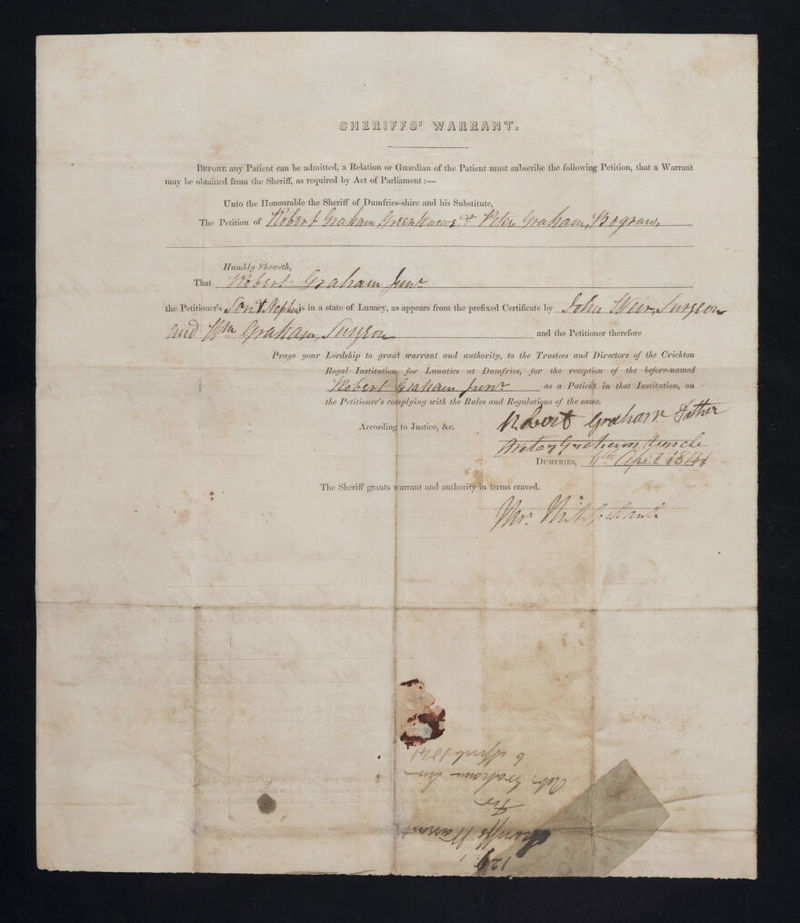 SHERIFFS' WARRANT.
BEFORE any Patient can be admitted, a Relation or Guardian of the Patient must subscribe the following Petition, that a Warrant
may be obtained from the Sheriff, as required by Act of Parliament :—
Unto the Honourable the Sheriff of Dumfries-shire and his Substitute,
The Petition of Robert Graham, Greenknowe, & Peter Graham, Bograw,
Humbly Sheweth,
That Robert Graham Junr
the Petitioner's Son & Nephew is in a state of Lunacy, as appears from the prefixed Certificate by John Weir, Surgeon
and Wm Graham, Surgeon and the Petitioner therefore
Prays your Lordship to grant warrant and authority, to the Trustees and Directors of the Crichton
Royal Institution for Lunatics at Dumfries, for the reception of the before-named
Robert Graham Junr as a Patient in that Institution, on
the Petitioner's complying with the Rules and Regulations of the same.
According to Justice, &c.
Robert Graham Father
Peter Graham Uncle
DUMFRIES, April 1841
The Sheriff grants warrant and authority in terms craved.
129
Sheriffs Warrant
For
Robt. Graham Jun
6 April 1841